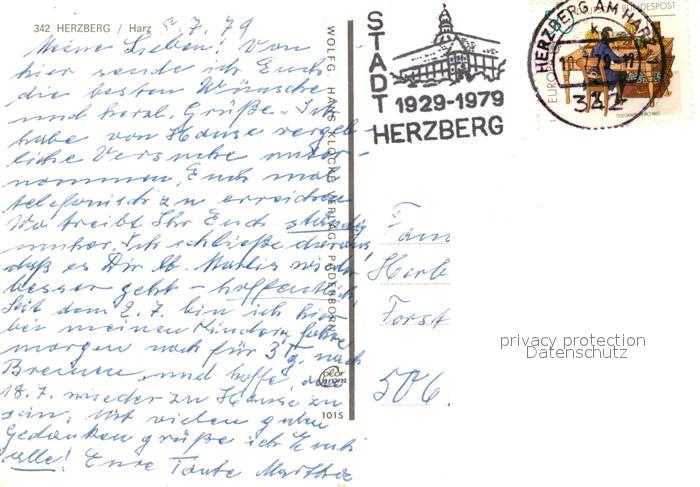 342 HERZBERG / Harz 8.7.79
Meine Lieben! Von
hier sende ich Euch
die besten Wünsche
und herzl. Grüße. Ich
habe von Hause vergeb-
liche Versuche unter-
nommen, Euch mal
telefonisch zu erreichen
Wo treibt Ihr Euch ständig
umher. Ich schließe daraus
daß es Dir lb. Marlis wieder
besser geht - hoffentlich!
Seit dem 2.7. bin ich hier
bei meinen Kindern, fahre
morgen noch für 3 Tg. nach
Bremen und hoffe, am
18.7. wieder zu Hause zu
sein. Mit vielen guten
Gedanken grüße ich Euch
alle! Eure Tante Martha
WOLFG. HANS KLOCKE VERLAG PADERBORN
color
chrom
1015
STADT
1929-1979
HERZBERG
HERZBERG AM HARZ
342
DEUTSCHE BUNDESPOST
EUROPA
Fam
Herb
Forst
506
privacy protection
Datenschutz